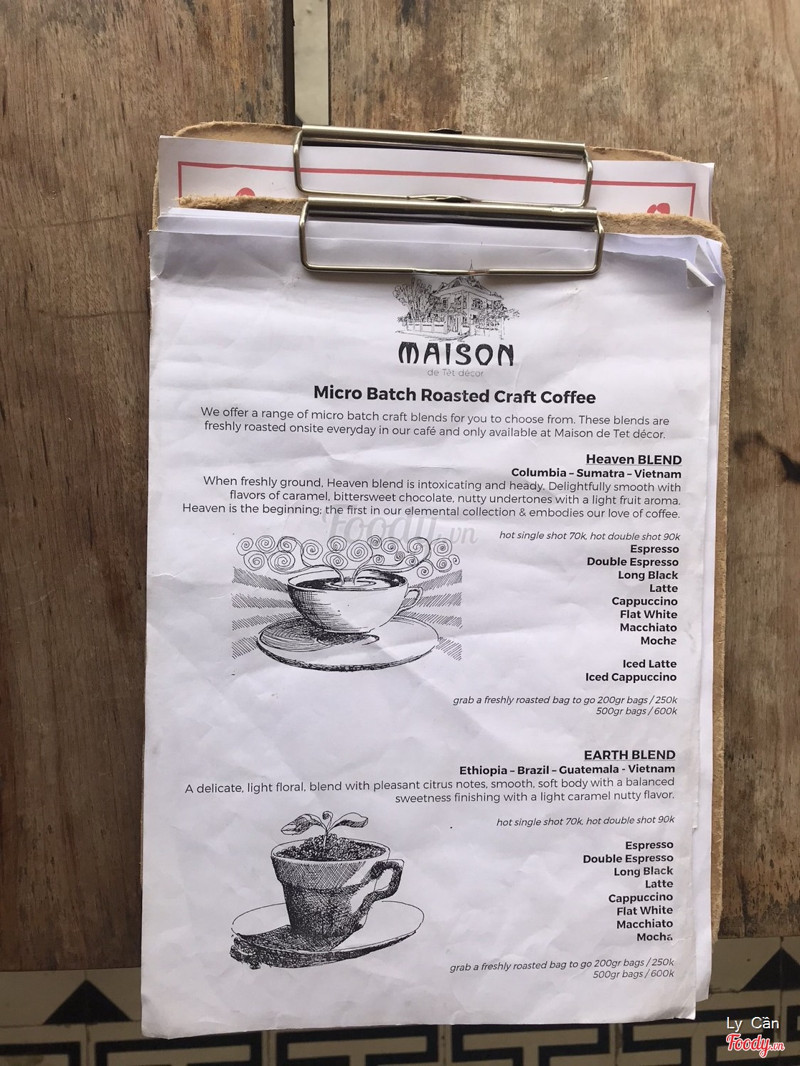 MAISON
de Têt décor
Micro Batch Roasted Craft Coffee
We offer a range of micro batch craft blends for you to choose from. These blends are
freshly roasted onsite everyday in our café and only available at Maison de Tet décor.
Heaven BLEND
Columbia – Sumatra – Vietnam
When freshly ground, Heaven blend is intoxicating and heady. Delightfully smooth with
flavors of caramel, bittersweet chocolate, nutty undertones with a light fruit aroma.
Heaven is the beginning; the first in our elemental collection & embodies our love of coffee.
Foody.vn
hot single shot 70k, hot double shot 90k
Espresso
Double Espresso
Long Black
Latte
Cappuccino
Flat White
Macchiato
Mocha
Iced Latte
Iced Cappuccino
grab a freshly roasted bag to go 200gr bags / 250k
500gr bags / 600k
EARTH BLEND
Ethiopia – Brazil – Guatemala - Vietnam
A delicate, light floral, blend with pleasant citrus notes, smooth, soft body with a balanced
sweetness finishing with a light caramel nutty flavor.
hot single shot 70k, hot double shot 90k
Espresso
Double Espresso
Long Black
Latte
Cappuccino
Flat White
Macchiato
Mocha
grab a freshly roasted bag to go 200gr bags / 250k
500gr bags / 600k
Ly Cần
Foody.vn